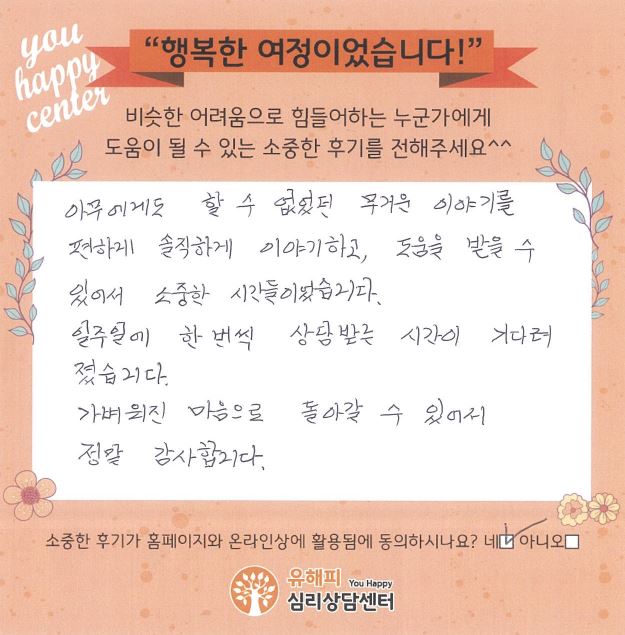 you
happy
center
“행복한 여정이었습니다!”
비슷한 어려움으로 힘들어하는 누군가에게
도움이 될 수 있는 소중한 후기를 전해주세요^^
아무에게도 할 수 없었던 무거운 이야기를
편하게 솔직하게 이야기하고, 도움을 받을 수
있어서 소중한 시간들이었습니다.
일주일에 한 번씩 상담받는 시간이 기다려
졌습니다.
가벼워진 마음으로 돌아갈 수 있어서
정말 감사합니다.
소중한 후기가 홈페이지와 온라인상에 활용됨에 동의하시나요? 네☑ 아니오☐
유해피 You Happy
심리상담센터